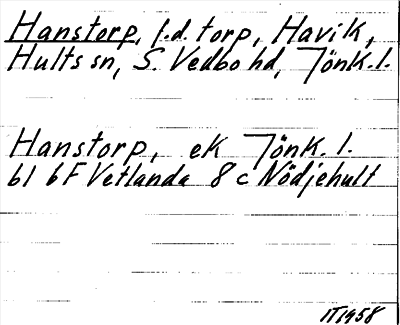 Hanstorp, f.d. torp, Havik,
Hults sn, S. Vedbo hd, Jönk. l.
Hanstorp, ek Jönk. l.
bl 6F Vetlanda 8 c Nödjehult
IT1958